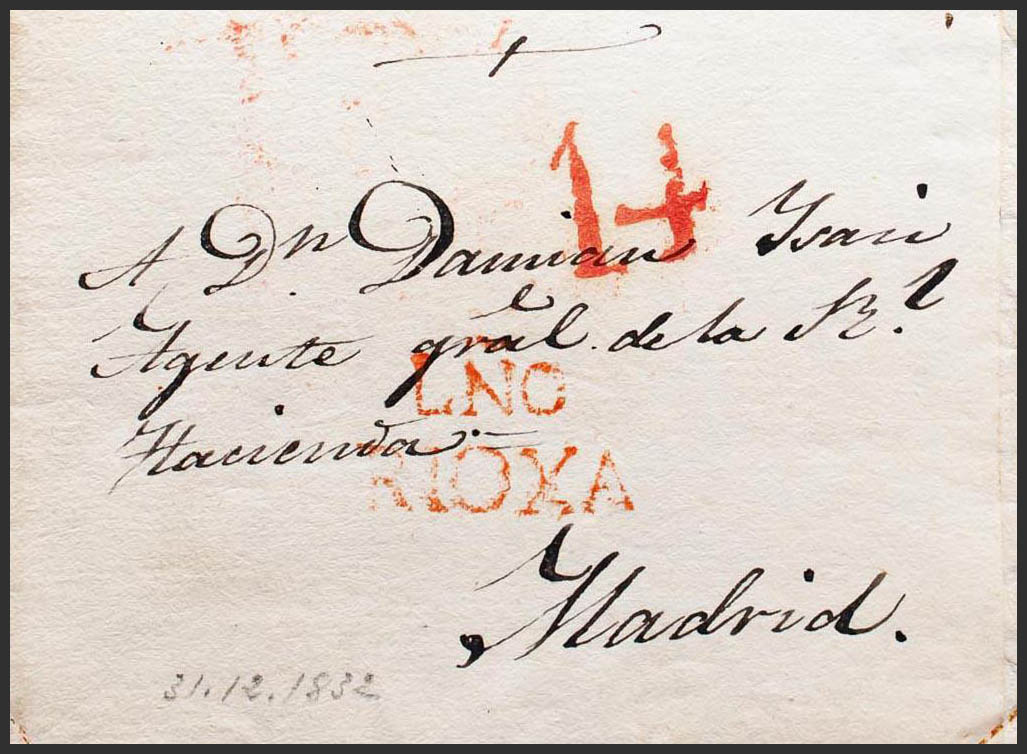 14
A Dn. Damian Isari
Agente gral. de la Rl.
LNO
Hacienda.
RIOXA
Madrid.
31.12.1832